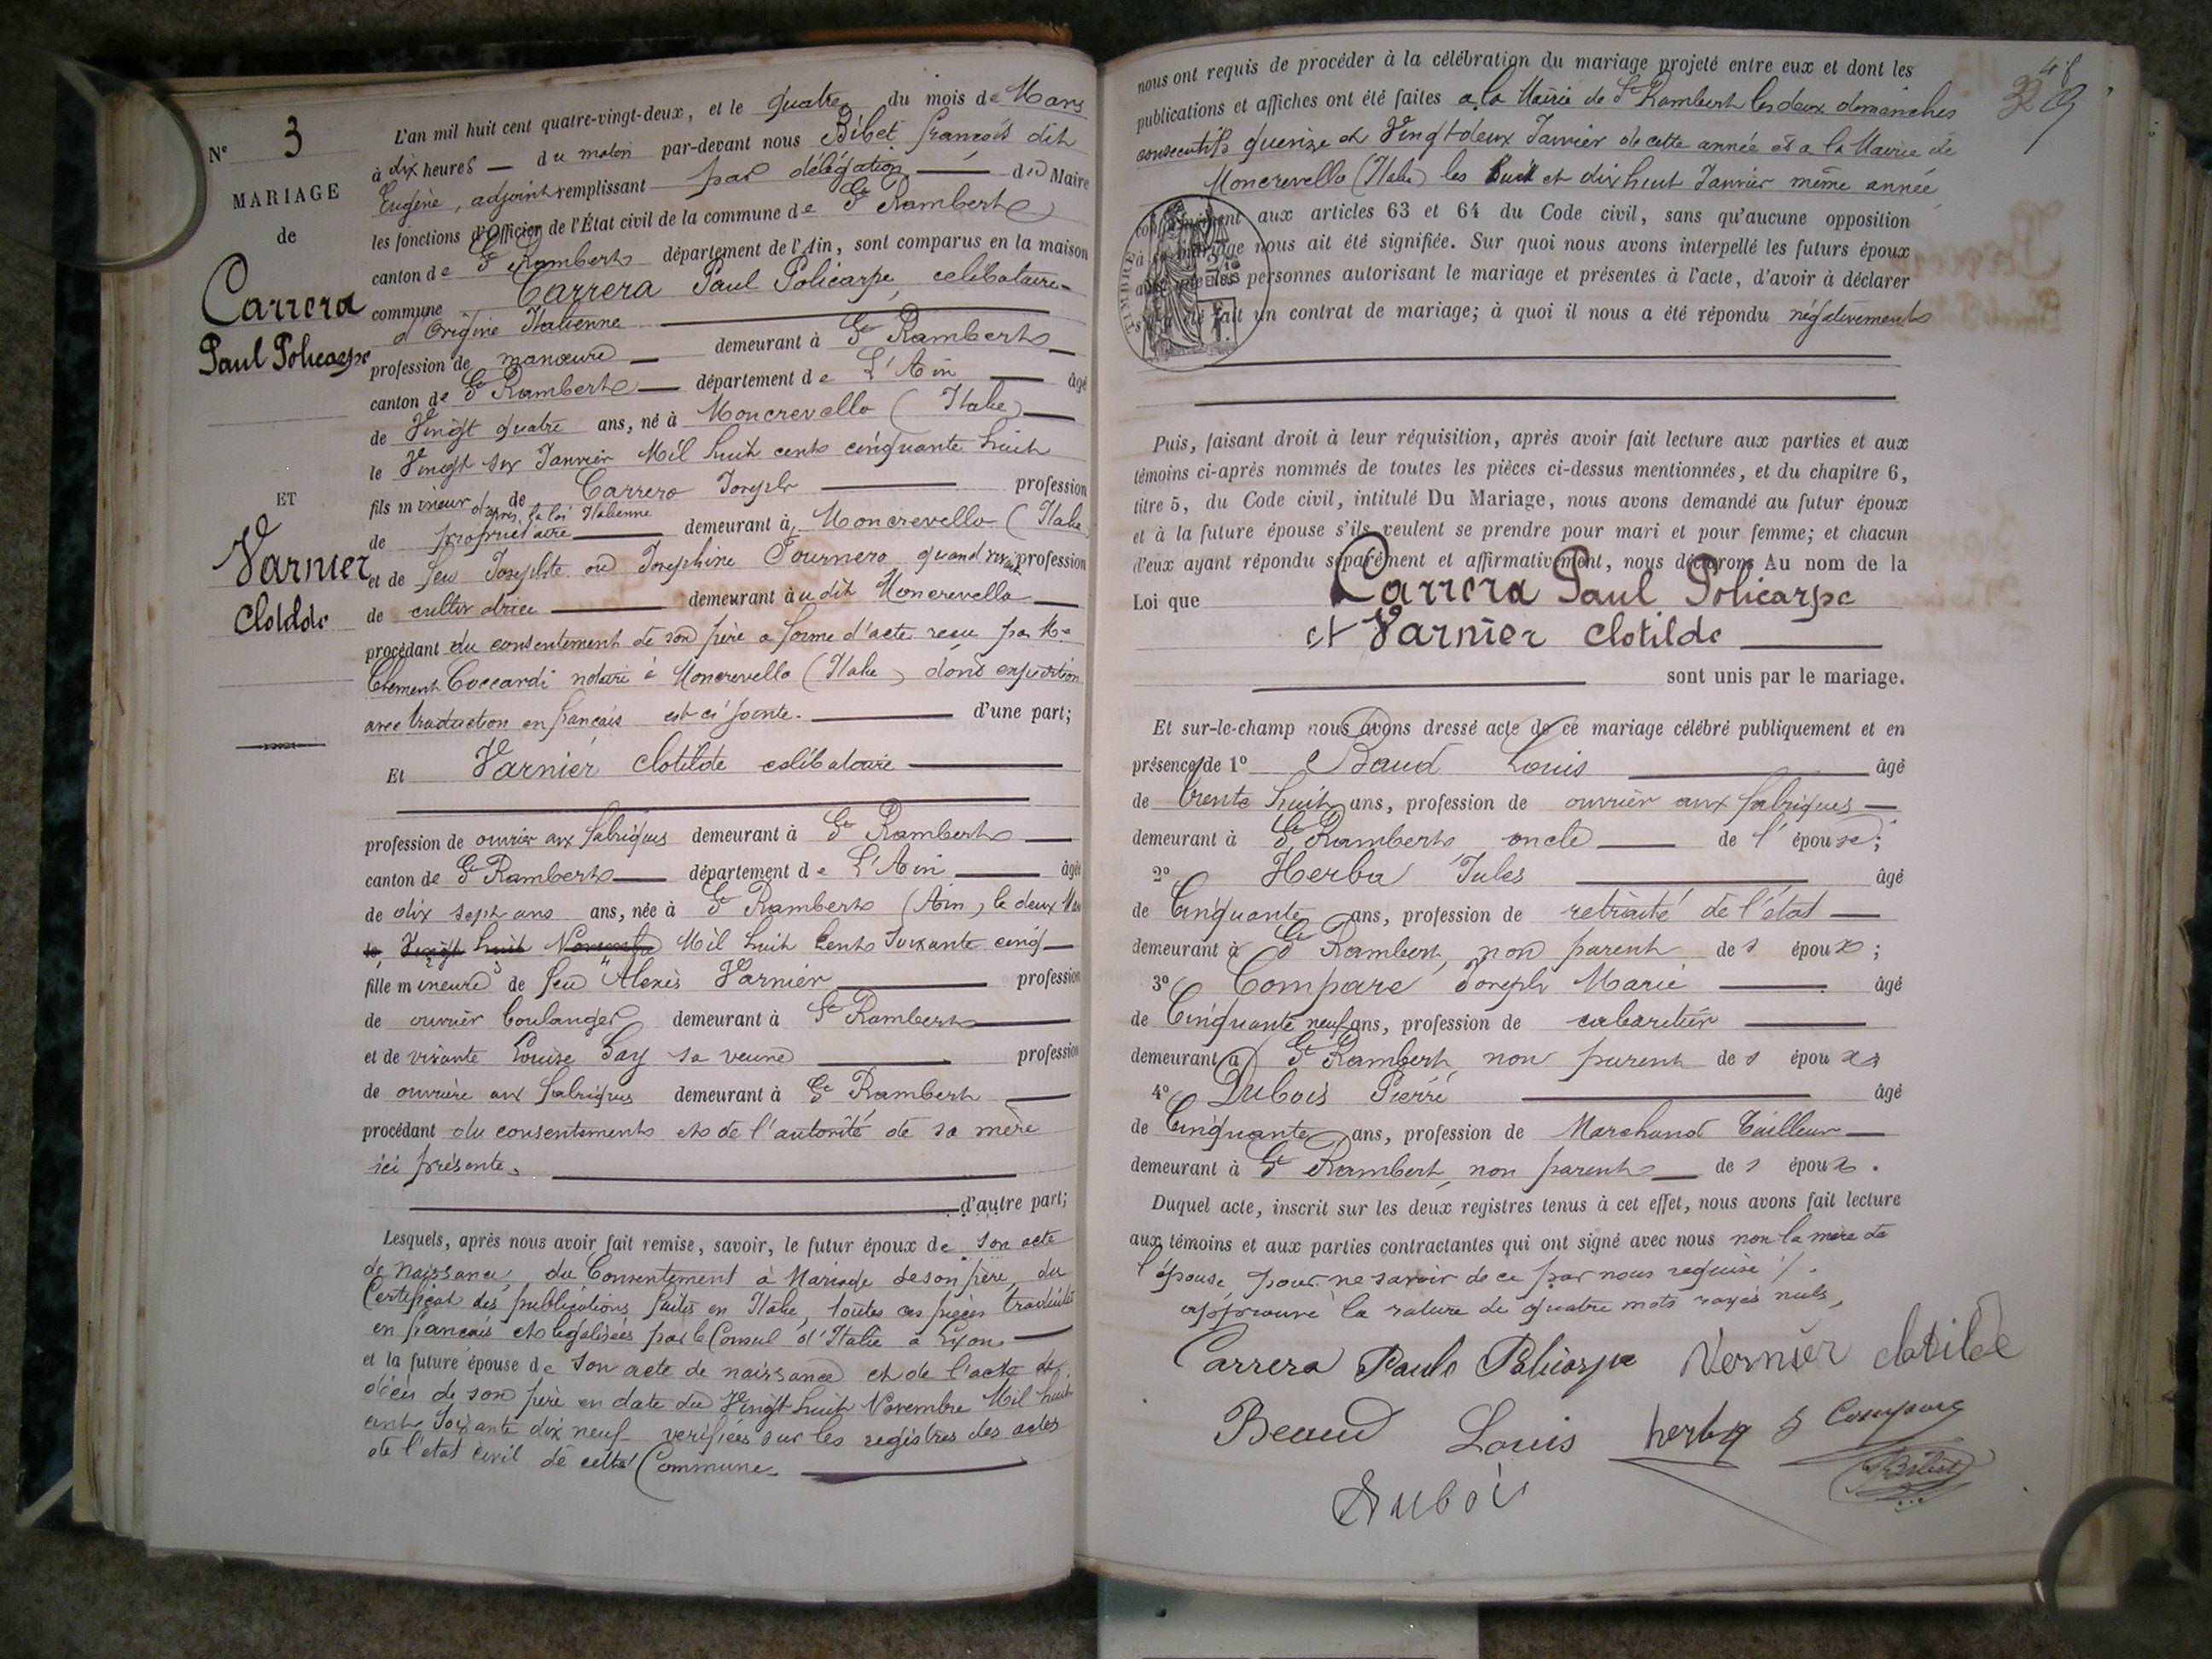 N° 3
MARIAGE
de
Carrera
Paul Policarpe
ET
Varnier
Clotilde
L'an mil huit cent quatre-vingt-deux, et le quatre du mois de Mars
à dix heures du matin par-devant nous Bibet françois dit
Eugène, adjoint remplissant par délégation du Maire
les fonctions d'Officier de l'État civil de la commune de St Rambert
canton de St Rambert département de l'Ain, sont comparus en la maison
commune Carrera Paul Policarpe, célibataire
d'Origine Italienne
profession de manœuvre demeurant à St Rambert
canton de St Rambert département de L'Ain âgé
de Vingt quatre ans, né à Moncrevello (Italie)
le Vingt six Janvier Mil huit cent cinquante huit
fils mineur d'après la loi Italienne de Carrera Joseph profession
de propriétaire demeurant à Moncrevello (Italie
et de feu Josephte ou Josephine Fournero quand vivait profession
de cultivatrice demeurant à udit Moncrevello
procédant du consentement de son père a forme d'acte recu par Me
Clement Coccardi notaire à Moncrevello (Italie) dont expédition
avec traduction en français est ci jointe. d'une part;
Et Varnier Clotilde célibataire
profession de ouvrier aux fabriques demeurant à St Rambert
canton de St Rambert département de L'Ain âgée
de dix sept ans ans, née à St Rambert (Ain) le deux Mars
le Vingt huit Novembre Mil huit Cent Soixante cinq
fille mineure de feu Alexis Varnier profession
de ouvrier boulanger demeurant à St Rambert
et de vivante Louise Gay sa veuve profession
de ouvrière aux fabriques demeurant à St Rambert
procédant du consentement et de l'autorité de sa mère
ici présente.
d'autre part;
Lesquels, après nous avoir fait remise, savoir, le futur époux de son acte
de Naissance, du Consentement à Mariage de son père, du
Certificat des publications faites en Italie, toutes ces pièces traduites
en français et legalisées par le Consul d'Italie a Lyon
et la future épouse de son acte de naissance et de l'acte de
décès de son père en date du Vingt huit Novembre Mil huit
cent Soixante dix neuf verifiées sur les registres des actes
de l'etat civil de cette Commune.
48
nous ont requis de procéder à la célébration du mariage projeté entre eux et dont les
publications et affiches ont été faites a la Mairie de St Rambert les deux dimanches
consecutifs quinze et Vingt-deux Janvier de cette année et a la Mairie de
Moncrevello (Italie) les huit et dix huit Janvier même année
conformément aux articles 63 et 64 du Code civil, sans qu'aucune opposition
à ce mariage nous ait été signifiée. Sur quoi nous avons interpellé les futurs époux
ainsi que les personnes autorisant le mariage et présentes à l'acte, d'avoir à déclarer
s'il a été fait un contrat de mariage; à quoi il nous a été répondu négativement
TIMBRE
Puis, faisant droit à leur réquisition, après avoir fait lecture aux parties et aux
témoins ci-après nommés de toutes les pièces ci-dessus mentionnées, et du chapitre 6,
titre 5, du Code civil, intitulé Du Mariage, nous avons demandé au futur époux
et à la future épouse s'ils veulent se prendre pour mari et pour femme; et chacun
d'eux ayant répondu séparément et affirmativement, nous déclarons Au nom de la
Loi que Carrera Paul Policarpe
et Varnier Clotilde
sont unis par le mariage.
Et sur-le-champ nous avons dressé acte de ce mariage célébré publiquement et en
présence de 1° Baud Louis âgé
de trente huit ans, profession de ouvrier aux fabriques
demeurant à St Rambert oncle de l'épouse;
2° Herba Jules âgé
de Cinquante ans, profession de retraité de l'état
demeurant à St Rambert, non parent des époux;
3° Compare Joseph Marie âgé
de Cinquante neuf ans, profession de cabaretier
demeurant à St Rambert non parent des époux;
4° Dubois Pierre âgé
de Cinquante ans, profession de Marchand Tailleur
demeurant à St Rambert non parent des époux.
Duquel acte, inscrit sur les deux registres tenus à cet effet, nous avons fait lecture
aux témoins et aux parties contractantes qui ont signé avec nous non la mère de
l'épouse pour ne savoir de ce par nous requise ./.
approuvé la rature de quatre mots rayés nuls,
Carrera Paulo Policarpe Vernier clotilde
Beaud Louis herba J Compare
Bibet
Dubois